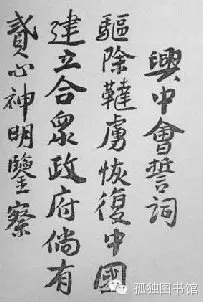 興中會誓詞
驅除韃虜恢復中國
建立合衆政府倘有
貳心神明鑒察
孤独图书馆